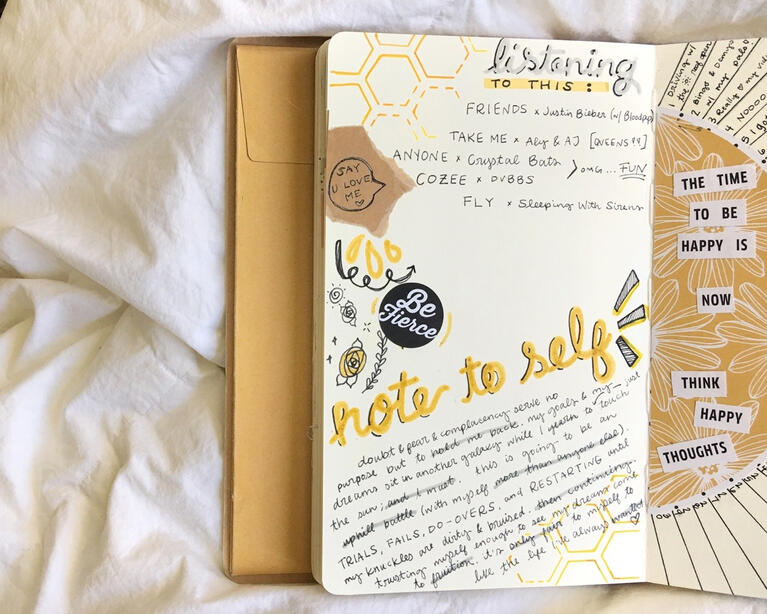 listening
TO THIS:
FRIENDS x Justin Bieber (w/ Bloodpop
TAKE ME x Aly & AJ [QUEENS??]
ANYONE x Crystal Bats
COZEE x DVBBS
> OMG... FUN
FLY x Sleeping With Sirens
SAY
U LOVE
ME
Be
Fierce
note to self
doubt & fear & complacency serve no
purpose but to hold me back. my goals & my
dreams sit in another galaxy while I yearn to touch just
the sun; and I must. this is going to be an
uphill battle (with myself more than anyone else).
TRIALS, FAILS, DO-OVERS, and RESTARTING until
my knuckles are dirty & bruised. then continuing
trusting myself enough to see my dreams come
to fruition. it's only fair to myself to
live the life i've always wanted
1 Driving w/
2 Bingo &
w/ my
3 Really
4 NOOOO
5 I
6
THE TIME
TO BE
HAPPY IS
NOW
THINK
HAPPY
THOUGHTS